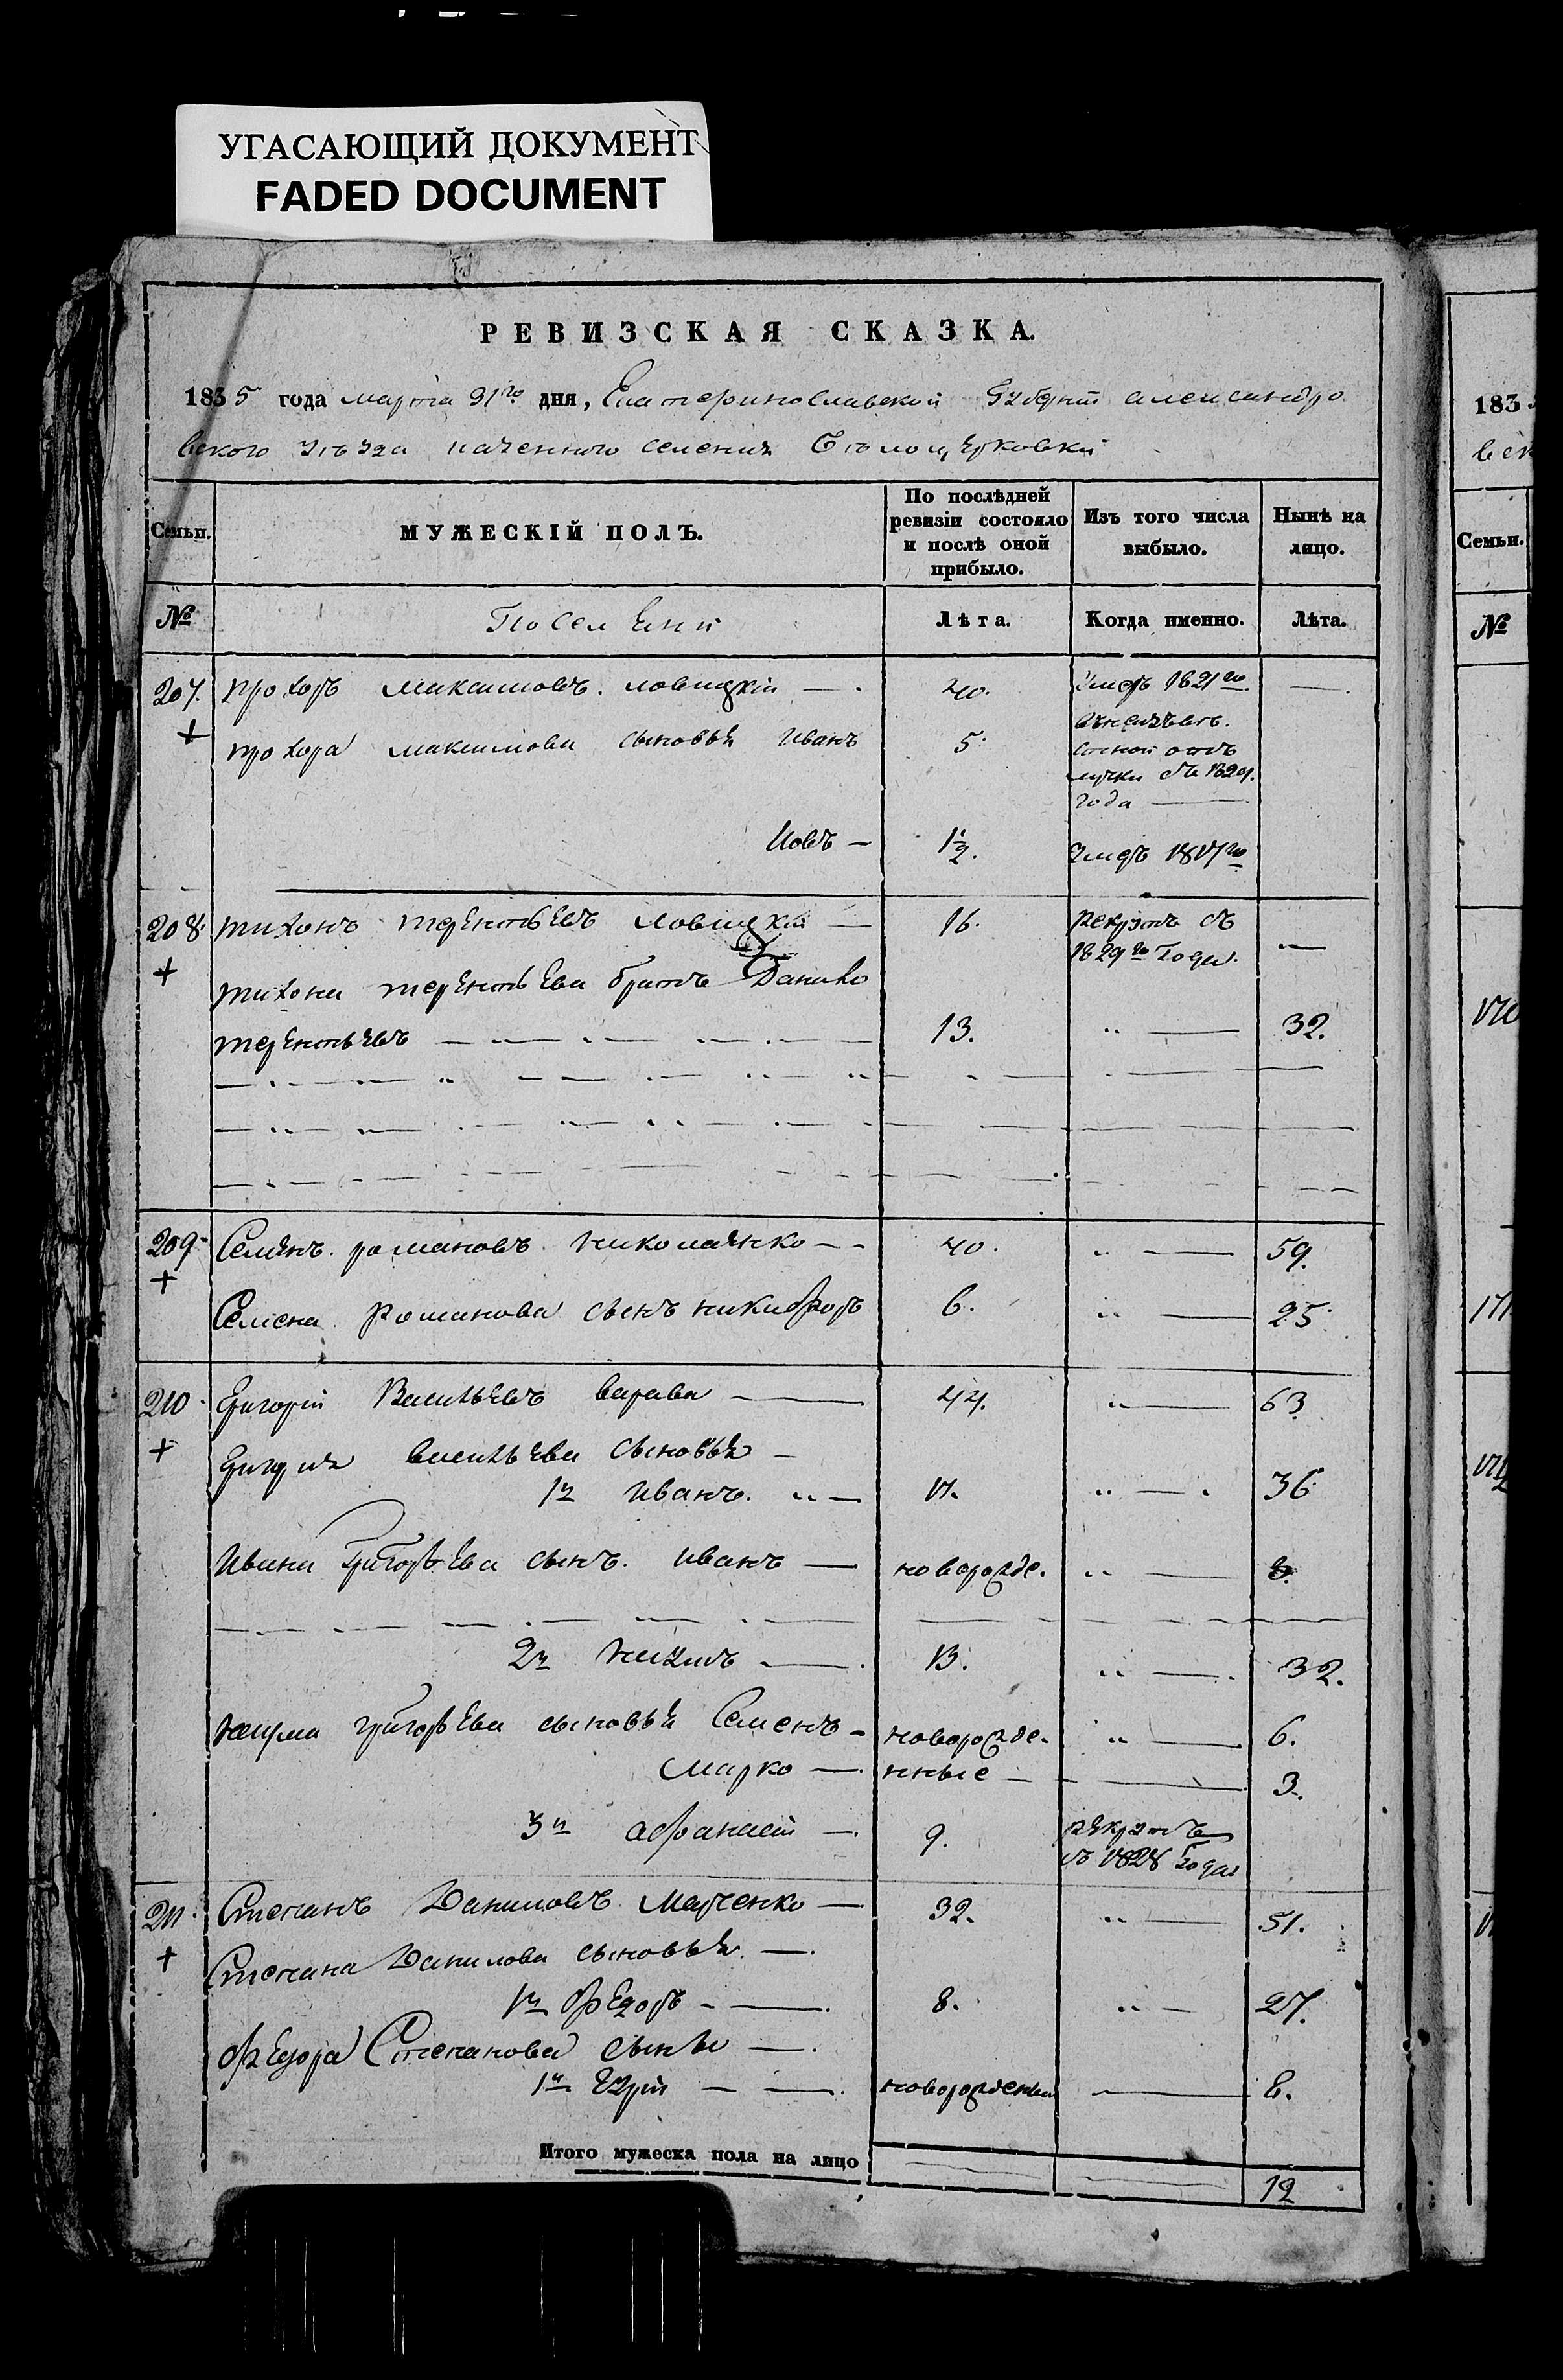 УГАСАЮЩИЙ ДОКУМЕНТ
FADED DOCUMENT
РЕВИЗСКАЯ СКАЗКА.
1835 года марта 31го дня, Екатеринославской Губернiи александро
вского уѣзда казенного селенiя Бѣлоцерковки
Семьи.
МУЖЕСКIЙ ПОЛЪ.
По послѣдней ревизiи состояло и послѣ оной прибыло.
Изъ того числа выбыло.
Нынѣ на лицо.
№ Поселяни Лѣта. Когда именно. Лѣта.
207. прохоръ максимовъ ловицкiй — 40. умеръ 1821го —
прохора максимова сыновья иванъ 5
отъ
лучки съ 1829
года —
Иовъ — 1½. умеръ 1817го
208. тихонъ терентьевъ ловицкiй — 16. рекрутъ съ
1829го года. —
тихона терентьева братъ Данило
терентьевъ 13. „ — 32.
209. Семенъ романовъ николаенко — 40. „ — 59.
Семена романова сынъ никифоръ 6. „ — 25
210. Григорiй Васильевъ варава — 44. „ — 63
григорiя васильева сыновья —
1й иванъ. „ — 17. „ — 36
ивана григорьева сынъ иванъ — новорожде. „ — 8.
2й наумъ — 13. „ — 32.
наума григорьева сыновья Семенъ — новорожде. „ — 6.
марко — нные — 3.
3й афанасiй — 9. рекрутъ
съ 1828 года
211. Степанъ Даниловъ марченко — 32. „ — 51.
Степана Данилова сыновья —
1й федоръ — 8. „ — 27.
федора Степанова сынъ —
1й — новорожденый — 8.
Итого мужеска пола на лицо 12
183
вск
Семьи.
№